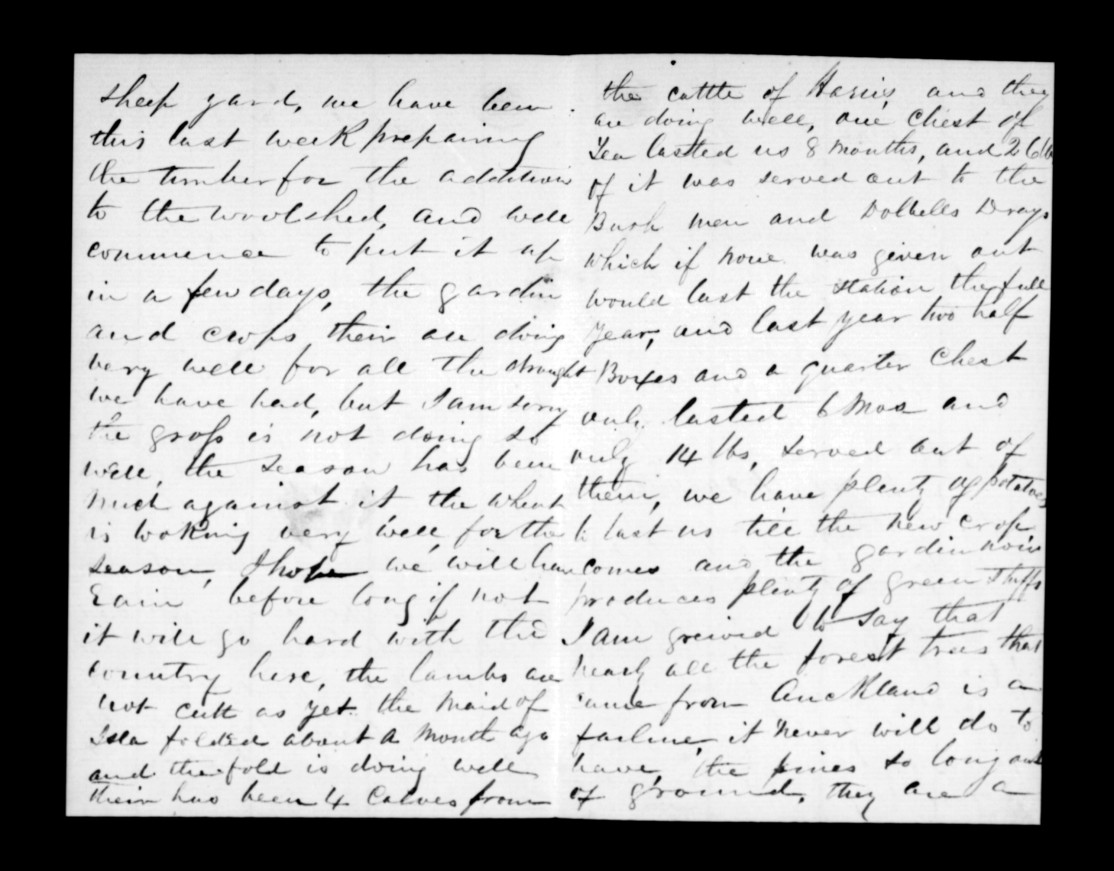 sheep yard, we have been
this last week preparing
the timber for the addition
to the woolshed, and will
commence to put it up
in a few days, the gardin
and crops their are doing
very well for all the drought
we have had, but I am sorry
the grass is not doing so
well, the season has been
much against it, the wheat
is looking very well, for the
season, I hope we will have
Rain before long if not
it will go hard with the
country here, the lambs are
not cutt as yet. the Maid of
Isla folded about a Month ago
and the fold is doing well
their has been 4 Calves from
the cattle of Haris, and they
are doing well, one Chest of
Tea lasted us 8 Months, and 26 lb
of it was served out to the
Bush men and Dolbells Drays
which if none was given out
would last the station the full
year, and last year two half
Boxes and a quarter Chest
only lasted 6 Mos and
only 14 lbs, served out of
them, we have plenty of potatoes
to last us till the new crop
comes and the gardin now
produces plenty of green stuffs
I am greived to say that
nearly all the forest trees that
came from Auckland is a
failure, it never will do to
have, the pines so long out
of ground, they are a